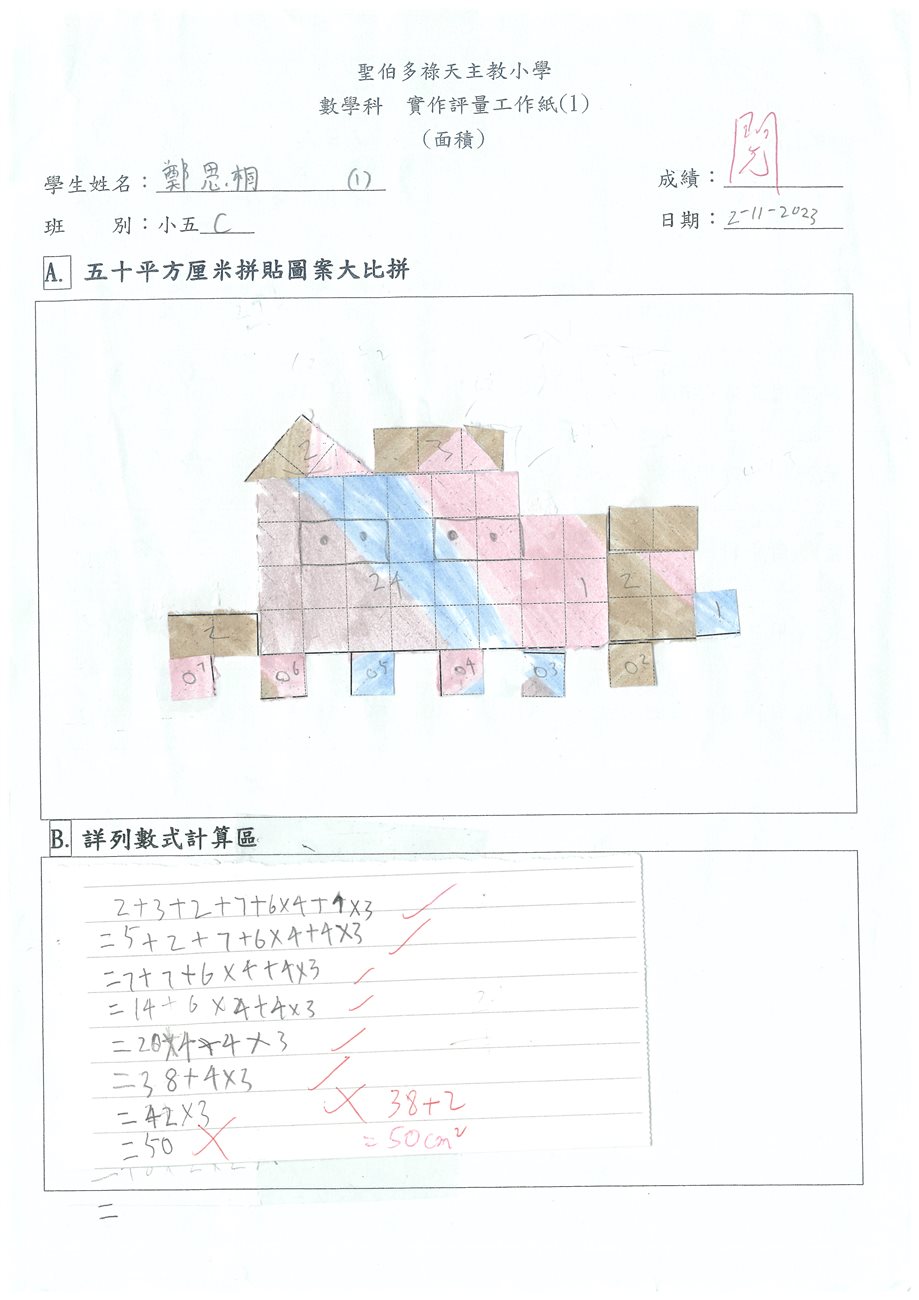 聖伯多祿天主教小學
數學科 實作評量工作紙(1)
(面積)
學生姓名：鄭思桐 (1)
成績：閱
班 別：小五 C
日期：2-11-2023
A. 五十平方厘米拼貼圖案大比拼
2 3
24 1 2 1
2
07 06 05 04 03 02
B. 詳列數式計算區
2+3+2+7+6×4+4×3
=5+2+7+6×4+4×3
=7+7+6×4+4×3
=14+6×4+4×3
=20×4+4×3
=38+4×3
=42×3 38+2
=50 =50cm²
=